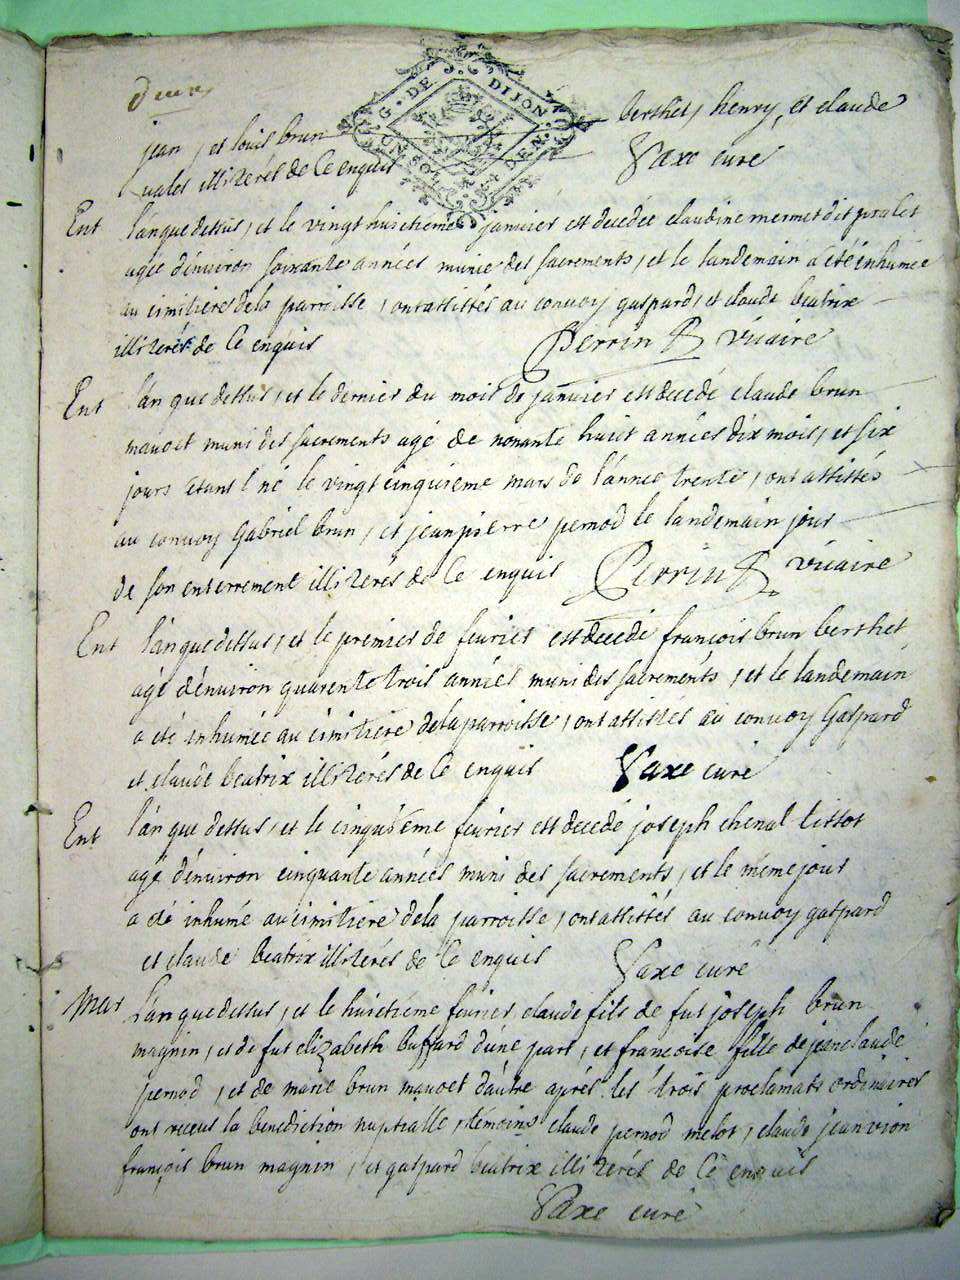 deux
G. DE DIJON
UN SOL DEN.
jean, et louis brun berthet, henry, et claude
vales illiterés de ce enquis Saxe curé
Ent l'an que dessus, et le vingt huictieme janvier est decedée claudine mermet dit pralet
agée d'environ soixante années munie des sacrements, et le landemain a été inhumée
au cimitiere de la parroisse, ont assistés au convoy gaspard, et claude beatrix
illiterés de ce enquis Perrin P vicaire
Ent l'an que dessus, et le dernier du mois de janvier est decedé claude brun
mavoet muni des sacrements agé de nonante huict années dix mois, et six
jours étant né le vingt cinquieme mars de l'année trente, ont assistés
au convoy Gabriel brun, et jean pierre pernod le landemain jour
de son enterrement illiterés de ce enquis Perrin P vicaire
Ent l'an que dessus, et le premier de fevrier est decedé françois brun berthet
agé d'environ quarente trois années muni des sacrements, et le landemain
a été inhumée au cimitiere de la parroisse, ont assistés au convoy Gaspard
et claude beatrix illiterés de ce enquis Saxe curé
Ent l'an que dessus, et le cinquiéme fevrier est decedé joseph chenal tissot
agé d'environ cinquante années muni des sacrements, et le méme jour
a été inhumé au cimitiere de la parroisse, ont assistés au convoy gaspard
et claude beatrix illiterés de ce enquis Saxe curé
Mar l'an que dessus, et le huictieme fevrier, claude fils de fut joseph brun
magnin, et de fut elizabeth buffard d'une part, et francoise fille de jean claude
pernod, et de marie brun mavoet d'autre aprés les trois proclamats ordinaires
ont receus la benediction nuptialle, témoins claude pernod melot, claude jean vion
françois brun magnin, et gaspard beatrix illiterés de ce enquis
Saxe curé